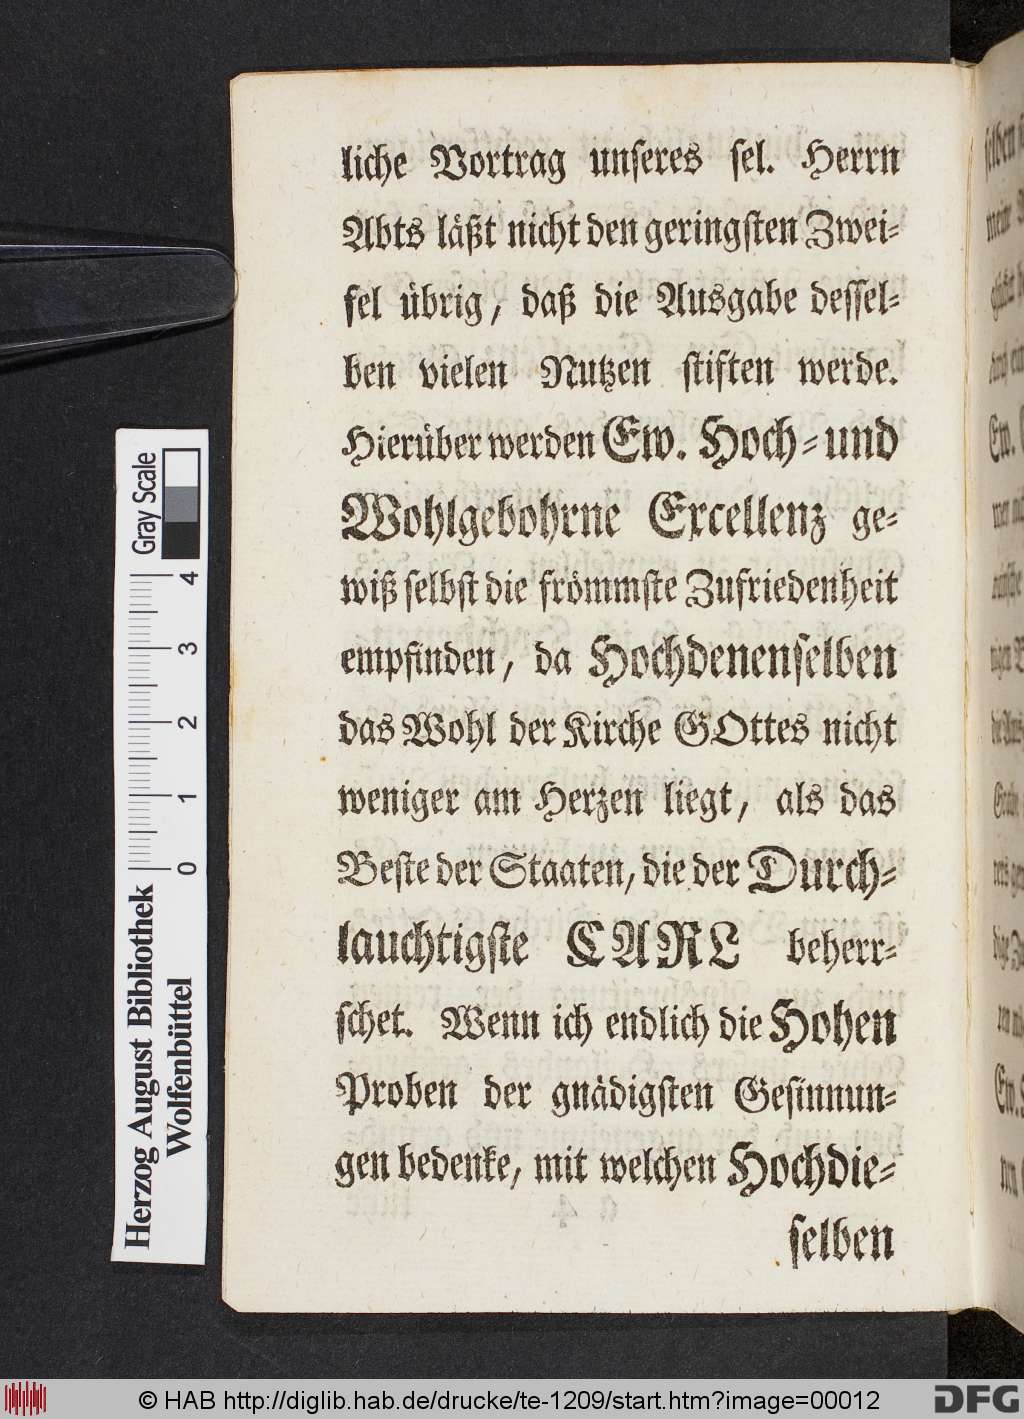 liche Vortrag unseres sel. Herrn
Abts läßt nicht den geringsten Zwei-
fel übrig, daß die Ausgabe dessel-
ben vielen Nutzen stiften werde.
Hierüber werden Ew. Hoch- und
Wohlgebohrne Excellenz ge-
wiß selbst die frömmste Zufriedenheit
empfinden, da Hochdenenselben
das Wohl der Kirche GOttes nicht
weniger am Herzen liegt, als das
Beste der Staaten, die der Durch-
lauchtigste CARL beherr-
schet. Wenn ich endlich die Hohen
Proben der gnädigsten Gesinnun-
gen bedenke, mit welchen Hochdie-
selben
Herzog August Bibliothek
Wolfenbüttel
0 1 2 3 4
Gray Scale
© HAB http://diglib.hab.de/drucke/te-1209/start.htm?image=00012
DFG